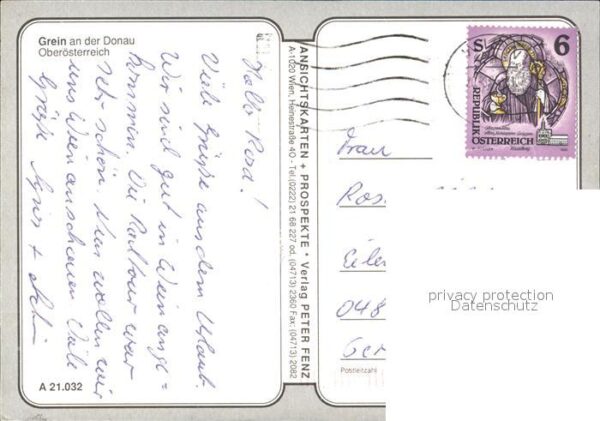 Grein an der Donau
Oberösterreich
Hallo Rosa!
Viele Grüße aus dem Urlaub.
Wir sind gut in Wien ange=
kommen. Die Radtour war
sehr schön. Nun wollen wir
uns Wien anschauen. Viele
Grüße
A 21.032
ANSICHTSKARTEN + PROSPEKTE * Verlag PETER FENZ
A-1020 Wien, Heinestraße 40 - Tel.(0222) 21 68 227 od. (04713) 2360 Fax: (04713) 2082
S 6
REPUBLIK
ÖSTERREICH
Frau
Ros
Eile
048
Ger
Postleitzahl
privacy protection
Datenschutz